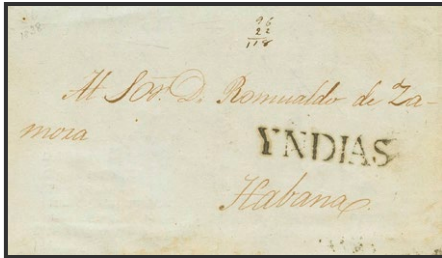 96
22
118
Al Sor. D. Romualdo de Za-
mora
YNDIAS
Habana